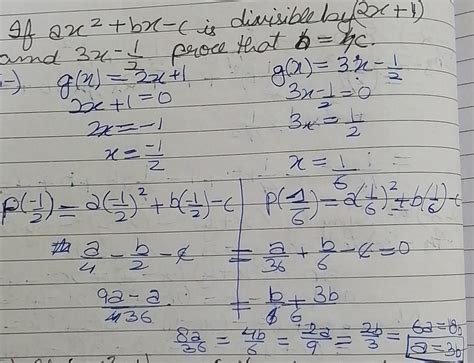 If ax² + bx - c is divisible by (2x + 1)
and 3x - 1/2 prove that b = 4c.
g(x) = 2x + 1
2x + 1 = 0
2x = -1
x = -1/2
g(x) = 3x - 1/2
3x - 1/2 = 0
3x = 1/2
x = 1/6
p(-1/2) = a(-1/2)² + b(-1/2) - c
p(1/6) = a(1/6)² + b(1/6) - c
a/4 - b/2 - c = a/36 + b/6 - c = 0
9a - a/36 = b + 3b/6
8a/36 = 4b/6 = 2a/9 = 2b/3 = 6a =
a = 3b